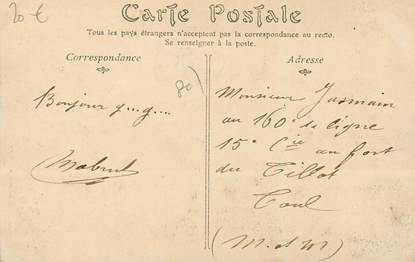 20 €
Carte Postale
Tous les pays étrangers n'acceptent pas la correspondance au recto.
Se renseigner à la poste.
Correspondance
80)
Bonjour q...q...
Adresse
Monsieur Jasmain
au 160e de ligne
15e Cie au fort
du Tillot
Toul
(M. et M)